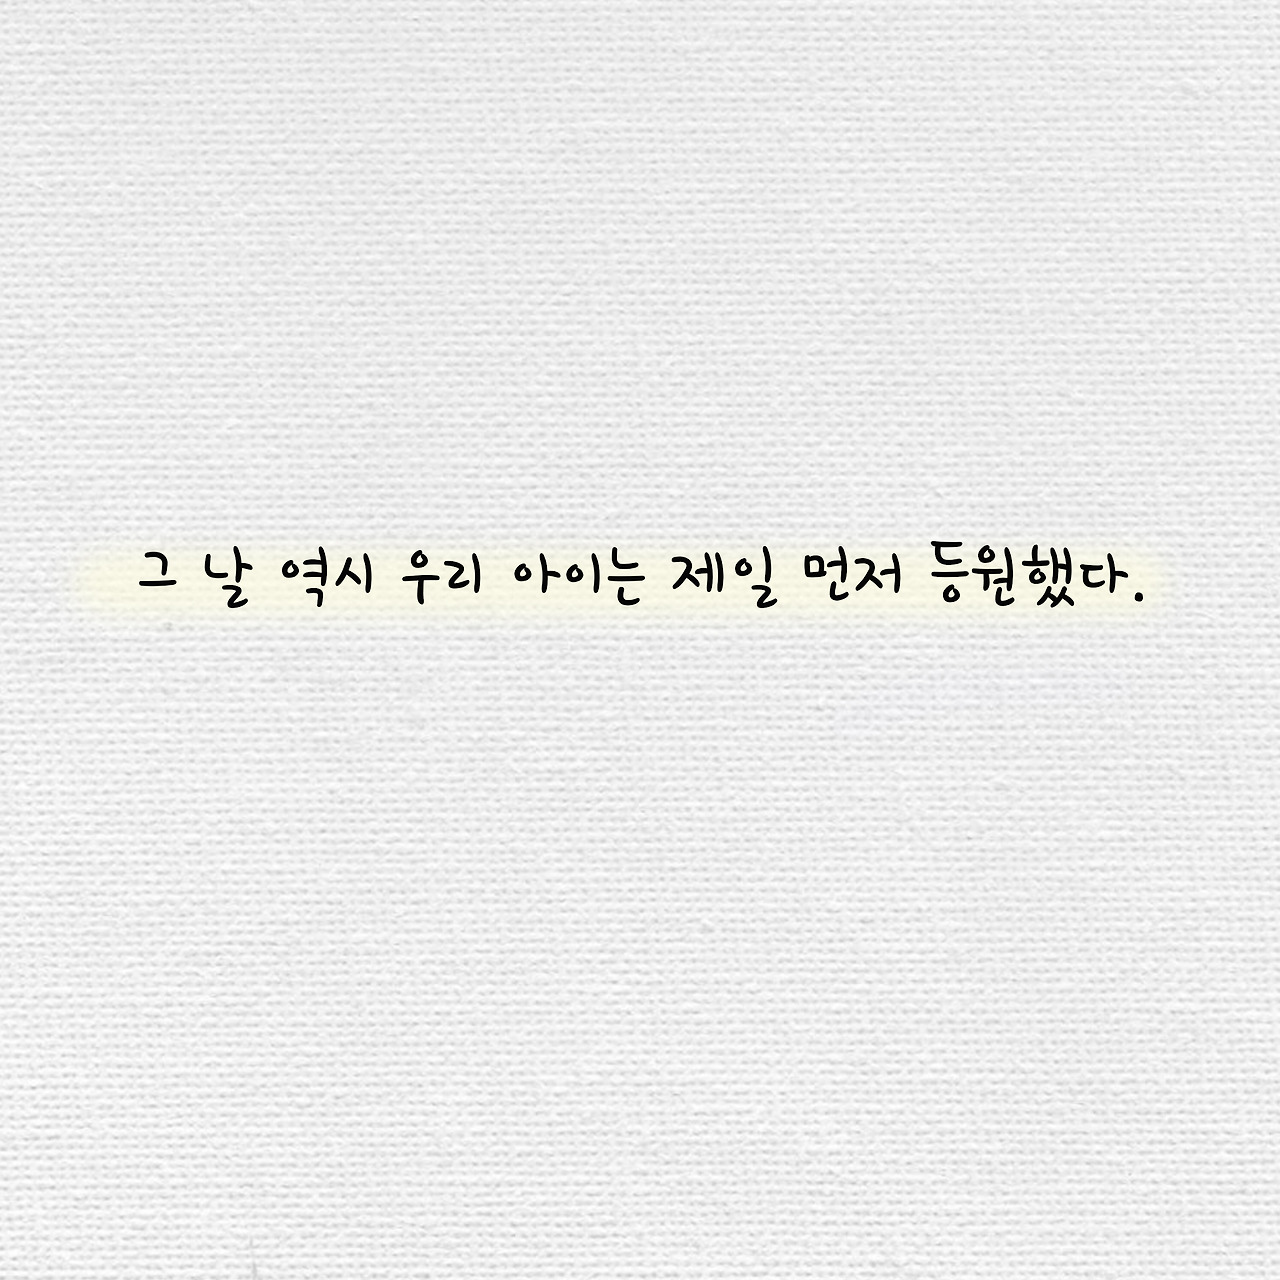 그 날 역시 우리 아이는 제일 먼저 등원했다.